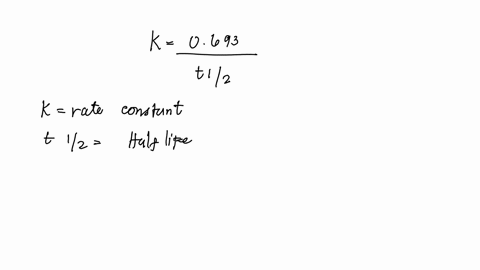 K = 0.693
t 1/2
K = rate constant
t 1/2 = Half life